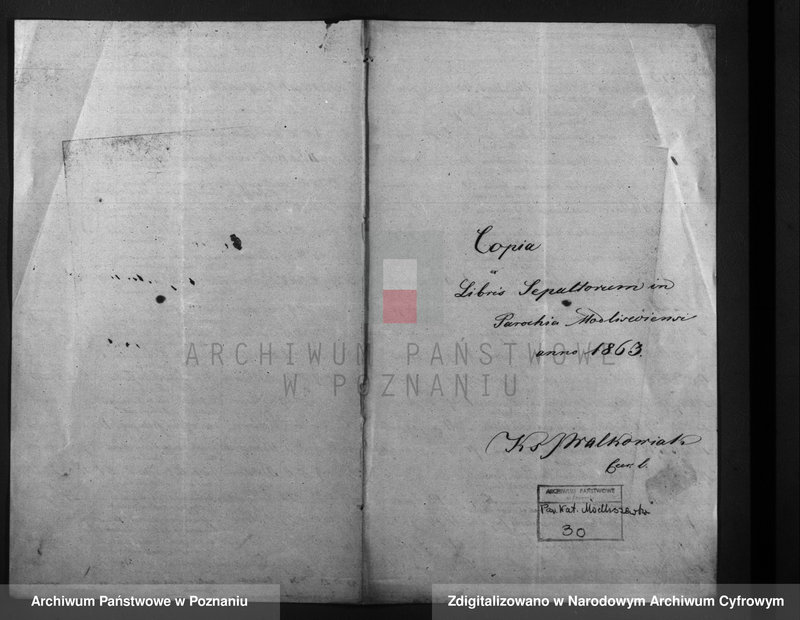 Copia
a
Libris Sepultorum in
Parochia Modliscviensi
anno 1863.
ARCHIWUM PAŃSTWOWE
W POZNANIU
Ks Walkowiak
ARCHIWUM PAŃSTWOWE
Par. Kat. Modliszewko
30
Archiwum Państwowe w Poznaniu
Zdigitalizowano w Narodowym Archiwum Cyfrowym